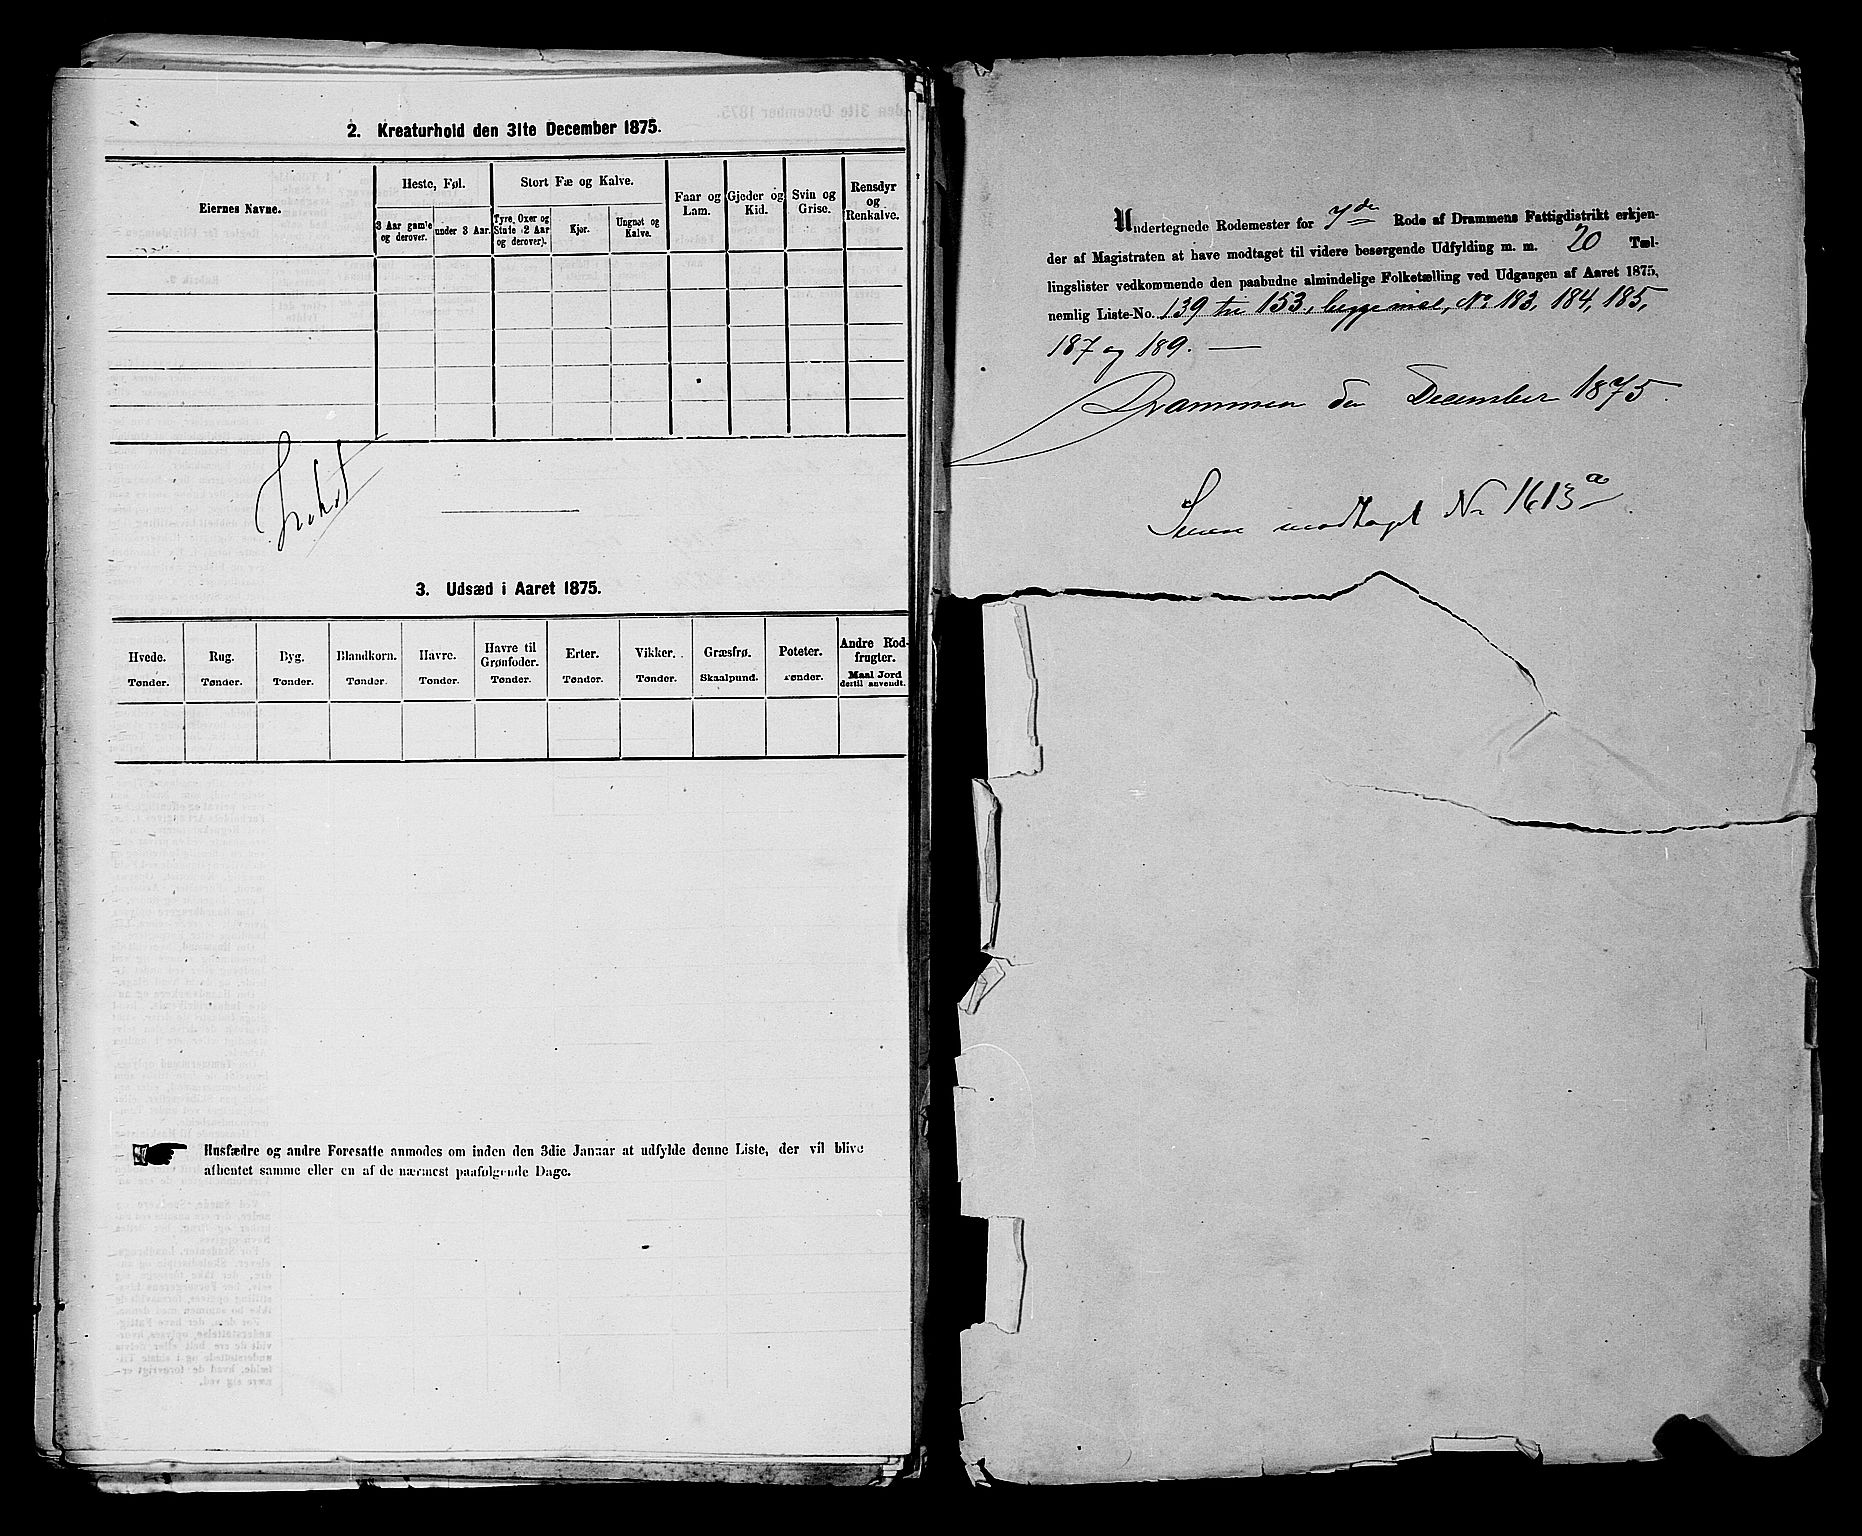 2. Kreaturhold den 31te December 1875.
Eiernes Navne.
Heste, Føl.
3 Aar gamle og derover.
under 3 Aar.
Stort Fæ og Kalve.
Tyre, Oxer og Stude (2 Aar og derover).
Kjør.
Ungnøt og Kalve.
Faar og Lam.
Gjeder og Kid.
Svin og Grise.
Rensdyr og Renkalve.
3. Udsæd i Aaret 1875.
Hvede. Tønder.
Rug. Tønder.
Byg. Tønder.
Blandkorn. Tønder.
Havre. Tønder.
Havre til Grønfoder. Tønder.
Erter. Tønder.
Vikker. Tønder.
Græsfrø. Skaalpund.
Poteter. Tønder.
Andre Rodfrugter. Maal Jord dertil anvendt.
Husfædre og andre Foresatte anmodes om inden den 3die Januar at udfylde denne Liste, der vil blive
afhentet samme eller en af de nærmest paafølgende Dage.
Undertegnede Rodemester for 7de Rode af Drammens Fattigdistrikt erkjen-
der af Magistraten at have modtaget til videre besørgende Udfylding m. m. 20 Tæl-
lingslister vedkommende den paabudne almindelige Folketælling ved Udgangen af Aaret 1875,
nemlig Liste-No. 139 til 153, begge incl., No 183, 184, 185,
187 og 189. —
Drammen den December 1875.
Senere modtaget No 1613a